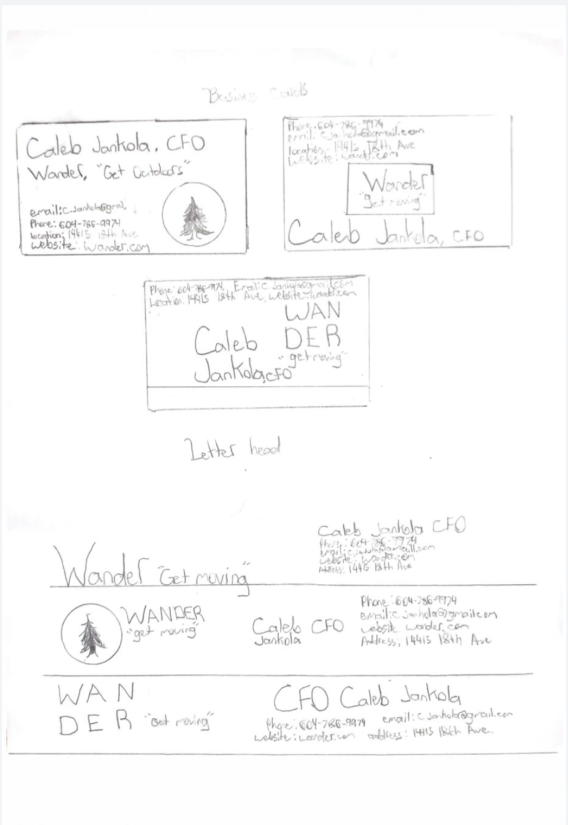 Business Cards
Caleb Jankola, CFO
Wander, "Get Outdoors"
email: c.jankola@gmail
Phone: 604-786-9974
location: 14415 18th Ave
website: Wander.com
Phone: 604-786-9974
email: c.jankola@gmail.com
location: 14415 18th Ave
website: wander.com
Wander
"get moving"
Caleb Jankola, CFO
Phone: 604-786-974, Email: C Jankola@gmail.com
Location: 14415 18th Ave, website: wander.com
WAN
DER
"get moving"
Caleb
Jankola, CFO
Letter head
Wander "Get moving"
Caleb Jankola CFO
Phone: 604-786-9974
email: c.jankola@gmail.com
website: wander.com
Address: 14415 18th Ave
WANDER
"get moving"
Caleb CFO
Jankola
Phone: 604-786-9974
email: c.jankola@gmail.com
website: wander.com
Address, 14415 18th Ave
WAN
DER "Get moving"
CFO Caleb Jankola
Phone: 604-786-9974 email: c.jankola@gmail.com
website: wander.com address: 14415 18th Ave.